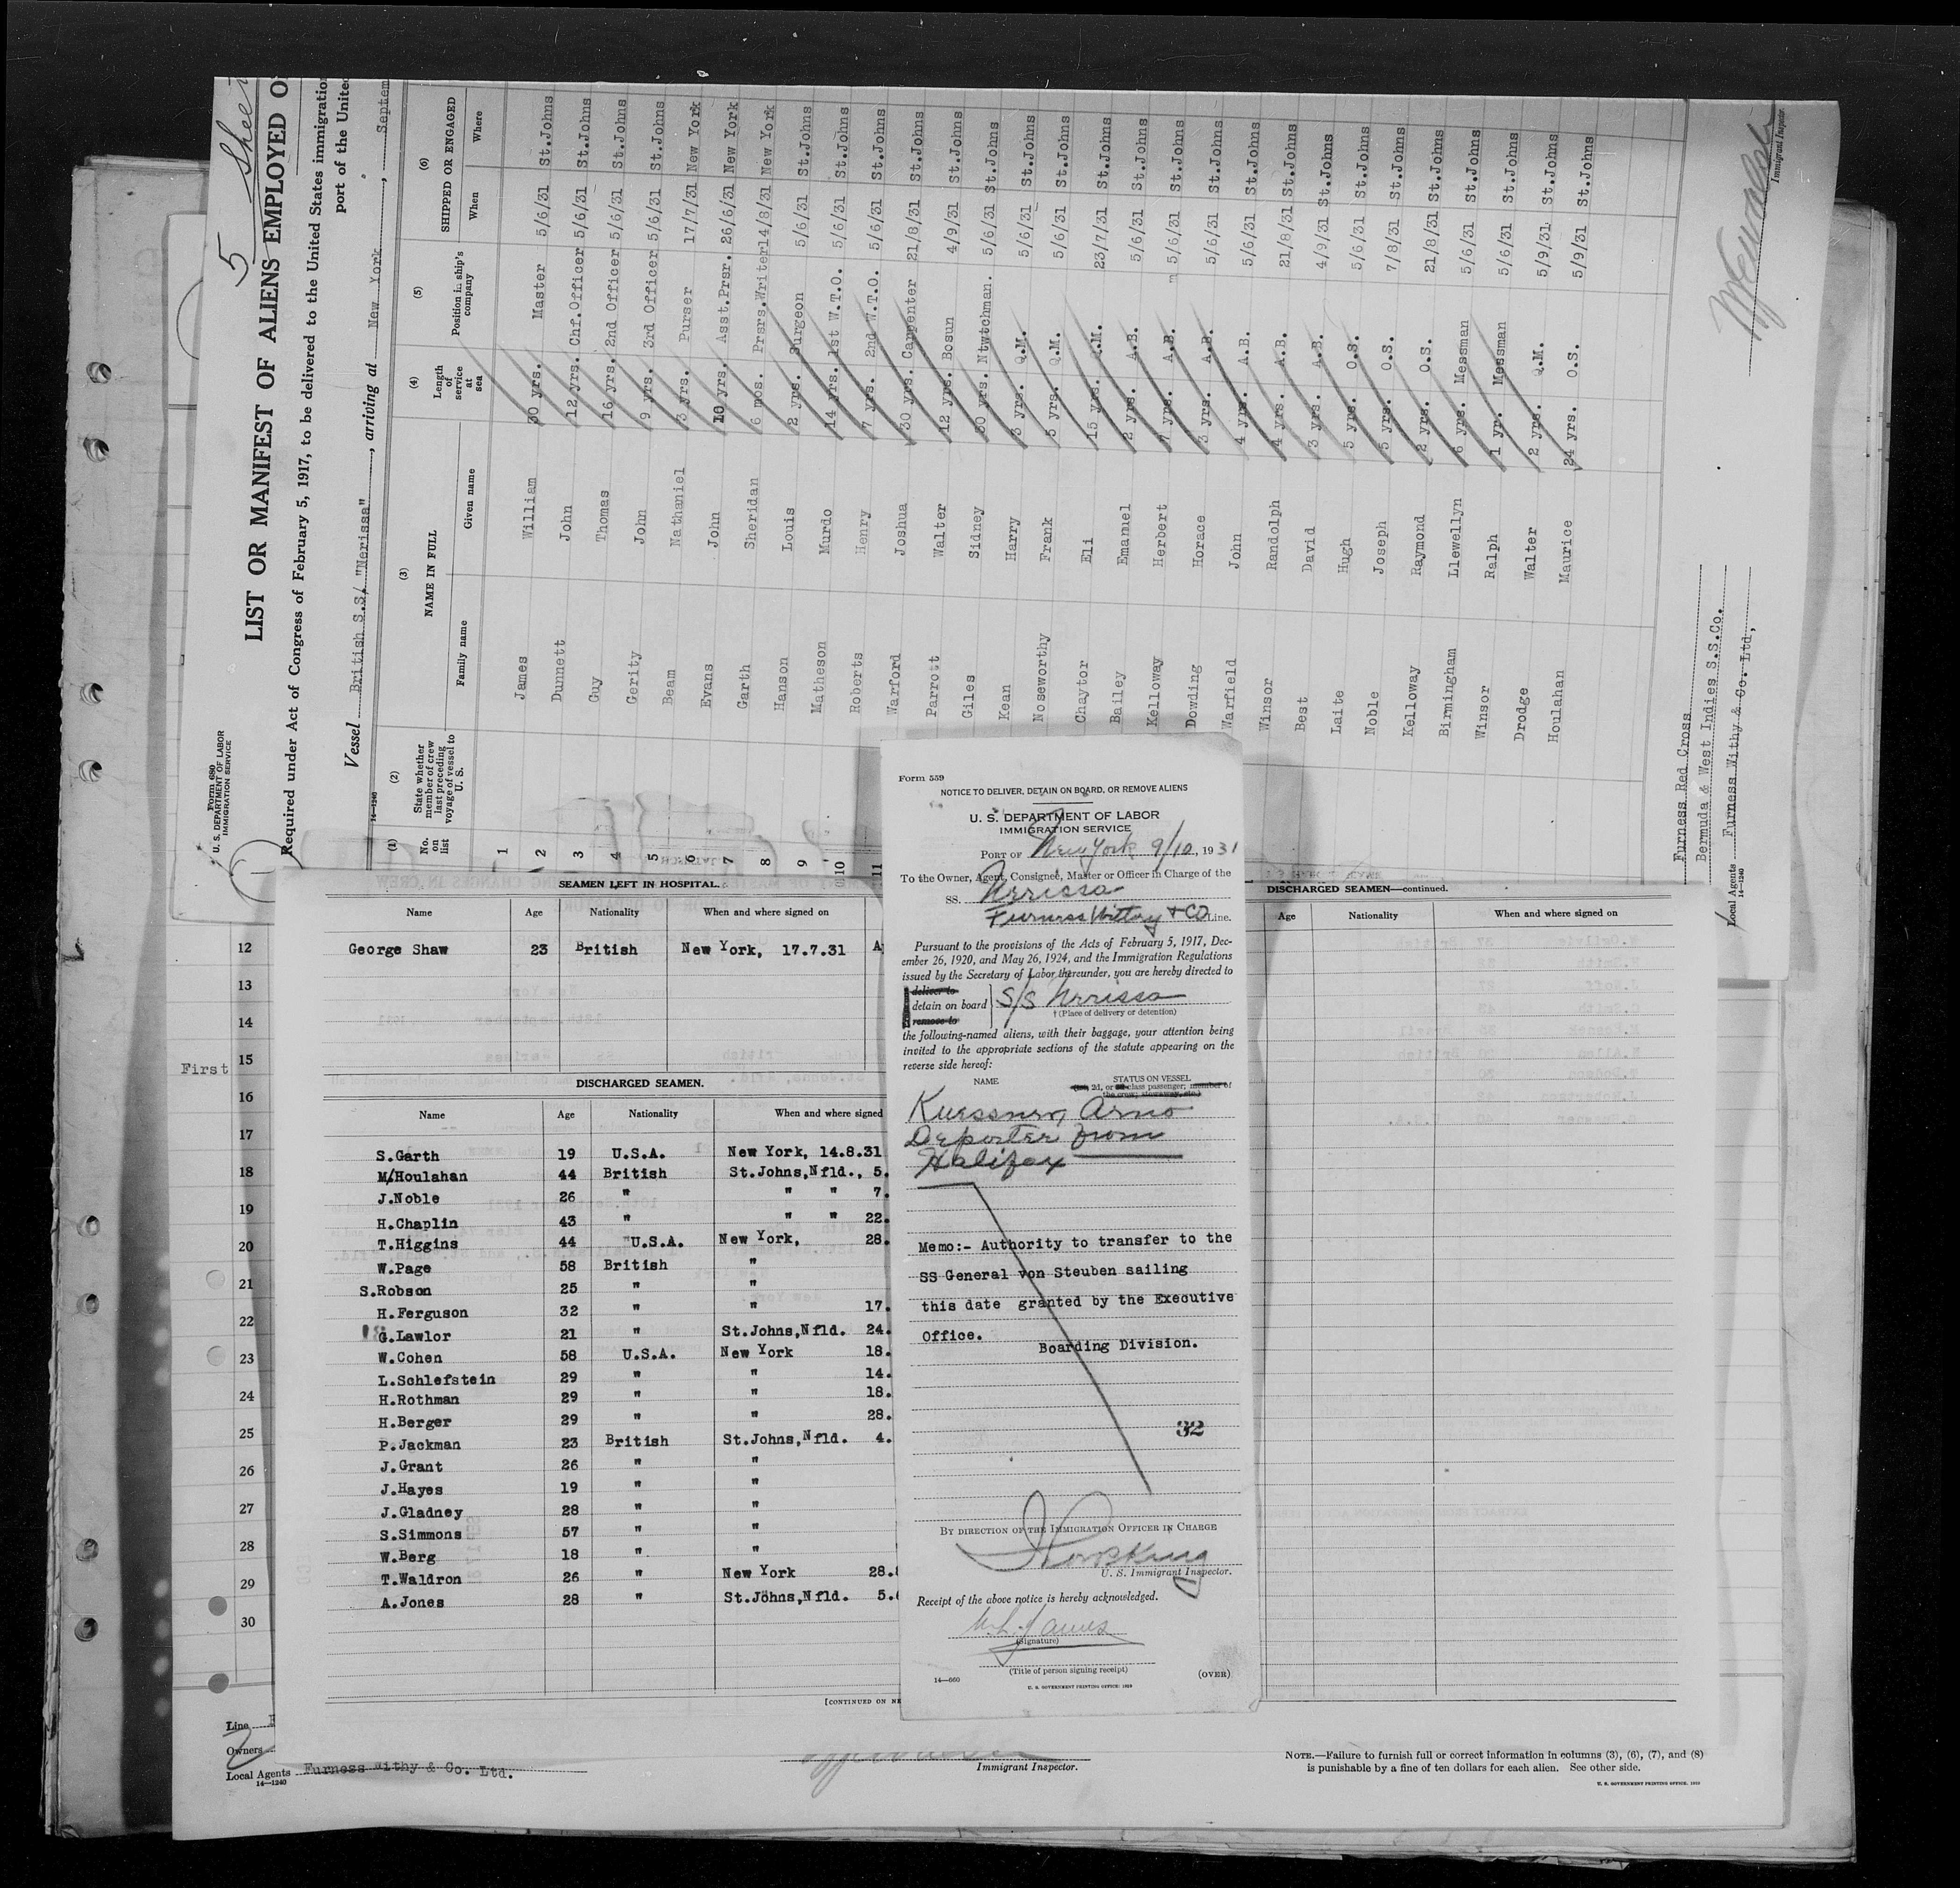 5 Sheet
Form 680
U. S. DEPARTMENT OF LABOR
IMMIGRATION SERVICE
LIST OR MANIFEST OF ALIENS EMPLOYED O
Required under Act of Congress of February 5, 1917, to be delivered to the United States immigration
port of the United
Vessel British S.S/ "Nerissa", arriving at New York, Septem
14—1240
(1) (2) (3) (4) (5) (6)
No. on list
State whether member of crew last preceding voyage of vessel to U. S.
NAME IN FULL
Family name Given name
Length of service at sea
Position in ship's company
SHIPPED OR ENGAGED
When Where
1 James William 30 yrs. Master 5/6/31 St.Johns
2 Dunnett John 12 yrs. Chf.Officer 5/6/31 St.Johns
3 Guy Thomas 16 yrs. 2nd Officer 5/6/31 St.Johns
4 Gerity John 9 yrs. 3rd Officer 5/6/31 St.Johns
5 Beam Nathaniel 3 yrs. Purser 17/7/31 New York
6 Evans John 10 yrs. Asst.Prsr. 26/6/31 New York
7 Garth Sheridan 6 mos. Prsrs.Writer 14/8/31 New York
8 Hanson Louis 2 yrs. Surgeon 5/6/31 St.Johns
9 Matheson Murdo 14 yrs. 1st W.T.O. 5/6/31 St.Johns
10 Roberts Henry 7 yrs. 2nd W.T.O. 5/6/31 St.Johns
11 Warford Joshua 30 yrs. Carpenter 21/8/31 St.Johns
Parrott Walter 12 yrs. Bosun 4/9/31 St.Johns
Giles Sidney 30 yrs. Ntwtchman. 5/6/31 St.Johns
Kean Harry 3 yrs. Q.M. 5/6/31 St.Johns
Noseworthy Frank 5 yrs. Q.M. 5/6/31 St.Johns
Chaytor Eli 15 yrs. Q.M. 23/7/31 St.Johns
Bailey Emanuel 2 yrs. A.B. 5/6/31 St.Johns
Kelloway Herbert 7 yrs. A.B. 5/6/31 St.Johns
Dowding Horace 3 yrs. A.B. 5/6/31 St.Johns
Warfield John 4 yrs. A.B. 5/6/31 St.Johns
Winsor Randolph 4 yrs. A.B. 21/8/31 St.Johns
Best David 3 yrs. A.B. 4/9/31 St.Johns
Laite Hugh 5 yrs. O.S. 5/6/31 St.Johns
Noble Joseph 5 yrs. O.S. 7/8/31 St.Johns
Kelloway Raymond 2 yrs. O.S. 21/8/31 St.Johns
Birmingham Llewellyn 6 yrs. Messman 5/6/31 St.Johns
Winsor Ralph 1 yr. Messman 5/6/31 St.Johns
Drodge Walter 2 yrs. Q.M. 5/9/31 St.Johns
Houlahan Maurice 24 yrs. O.S. 5/9/31 St.Johns
Furness Red Cross
Bermuda & West Indies S.S.Co.
Local Agents Furness Withy & Co. Ltd,
14—1240
Immigrant Inspector
SEAMEN LEFT IN HOSPITAL.
Name Age Nationality When and where signed on
George Shaw 23 British New York, 17.7.31 A
DISCHARGED SEAMEN.
Name Age Nationality When and where signed
S.Garth 19 U.S.A. New York, 14.8.31
M/Houlahan 44 British St.Johns,Nfld., 5.
J.Noble 26 " " " 7.
H.Chaplin 43 " " " 22.
T.Higgins 44 U.S.A. New York, 28.
W.Page 58 British "
S.Robson 25 " "
H.Ferguson 32 " " 17.
G.Lawlor 21 " St.Johns,Nfld. 24.
W.Cohen 58 U.S.A. New York 18.
L.Schlefstein 29 " " 14.
H.Rothman 29 " " 18.
H.Berger 29 " " 28.
P.Jackman 23 British St.Johns,Nfld. 4.
J.Grant 26 " "
J.Hayes 19 " "
J.Gladney 28 " "
S.Simmons 57 " "
W.Berg 18 " "
T.Waldron 26 " New York 28.
A.Jones 28 " St.Johns,Nfld. 5.
[CONTINUED ON NE
DISCHARGED SEAMEN—continued.
Age Nationality When and where signed on
12
13
14
First 15
16
17
18
19
20
21
22
23
24
25
26
27
28
29
30
Line
Owners
Local Agents Furness Withy & Co. Ltd.
14—1240
Immigrant Inspector.
NOTE.—Failure to furnish full or correct information in columns (3), (6), (7), and (8)
is punishable by a fine of ten dollars for each alien. See other side.
U. S. GOVERNMENT PRINTING OFFICE: 1929
Form 559
NOTICE TO DELIVER, DETAIN ON BOARD, OR REMOVE ALIENS
U. S. DEPARTMENT OF LABOR
IMMIGRATION SERVICE
PORT OF New York 9/10, 1931
To the Owner, Agent, Consignee, Master or Officer in Charge of the
SS. Nerissa
Furness Withy & CO Line.
Pursuant to the provisions of the Acts of February 5, 1917, Dec-
ember 26, 1920, and May 26, 1924, and the Immigration Regulations
issued by the Secretary of Labor thereunder, you are hereby directed to
deliver to
detain on board S/S Nerissa
remove to
†(Place of delivery or detention)
the following-named aliens, with their baggage, your attention being
invited to the appropriate sections of the statute appearing on the
reverse side hereof:
NAME STATUS ON VESSEL
2d, or class passenger; member of
the crew; stowaway, etc.)
Kuessner, Arno
Deportee from
Halifax
Memo:- Authority to transfer to the
SS General von Steuben sailing
this date granted by the Executive
Office.
Boarding Division.
32
BY DIRECTION OF THE IMMIGRATION OFFICER IN CHARGE
U. S. Immigrant Inspector.
Receipt of the above notice is hereby acknowledged.
W.L. James
(Signature)
(Title of person signing receipt)
14—660 (OVER)
U. S. GOVERNMENT PRINTING OFFICE: 1929